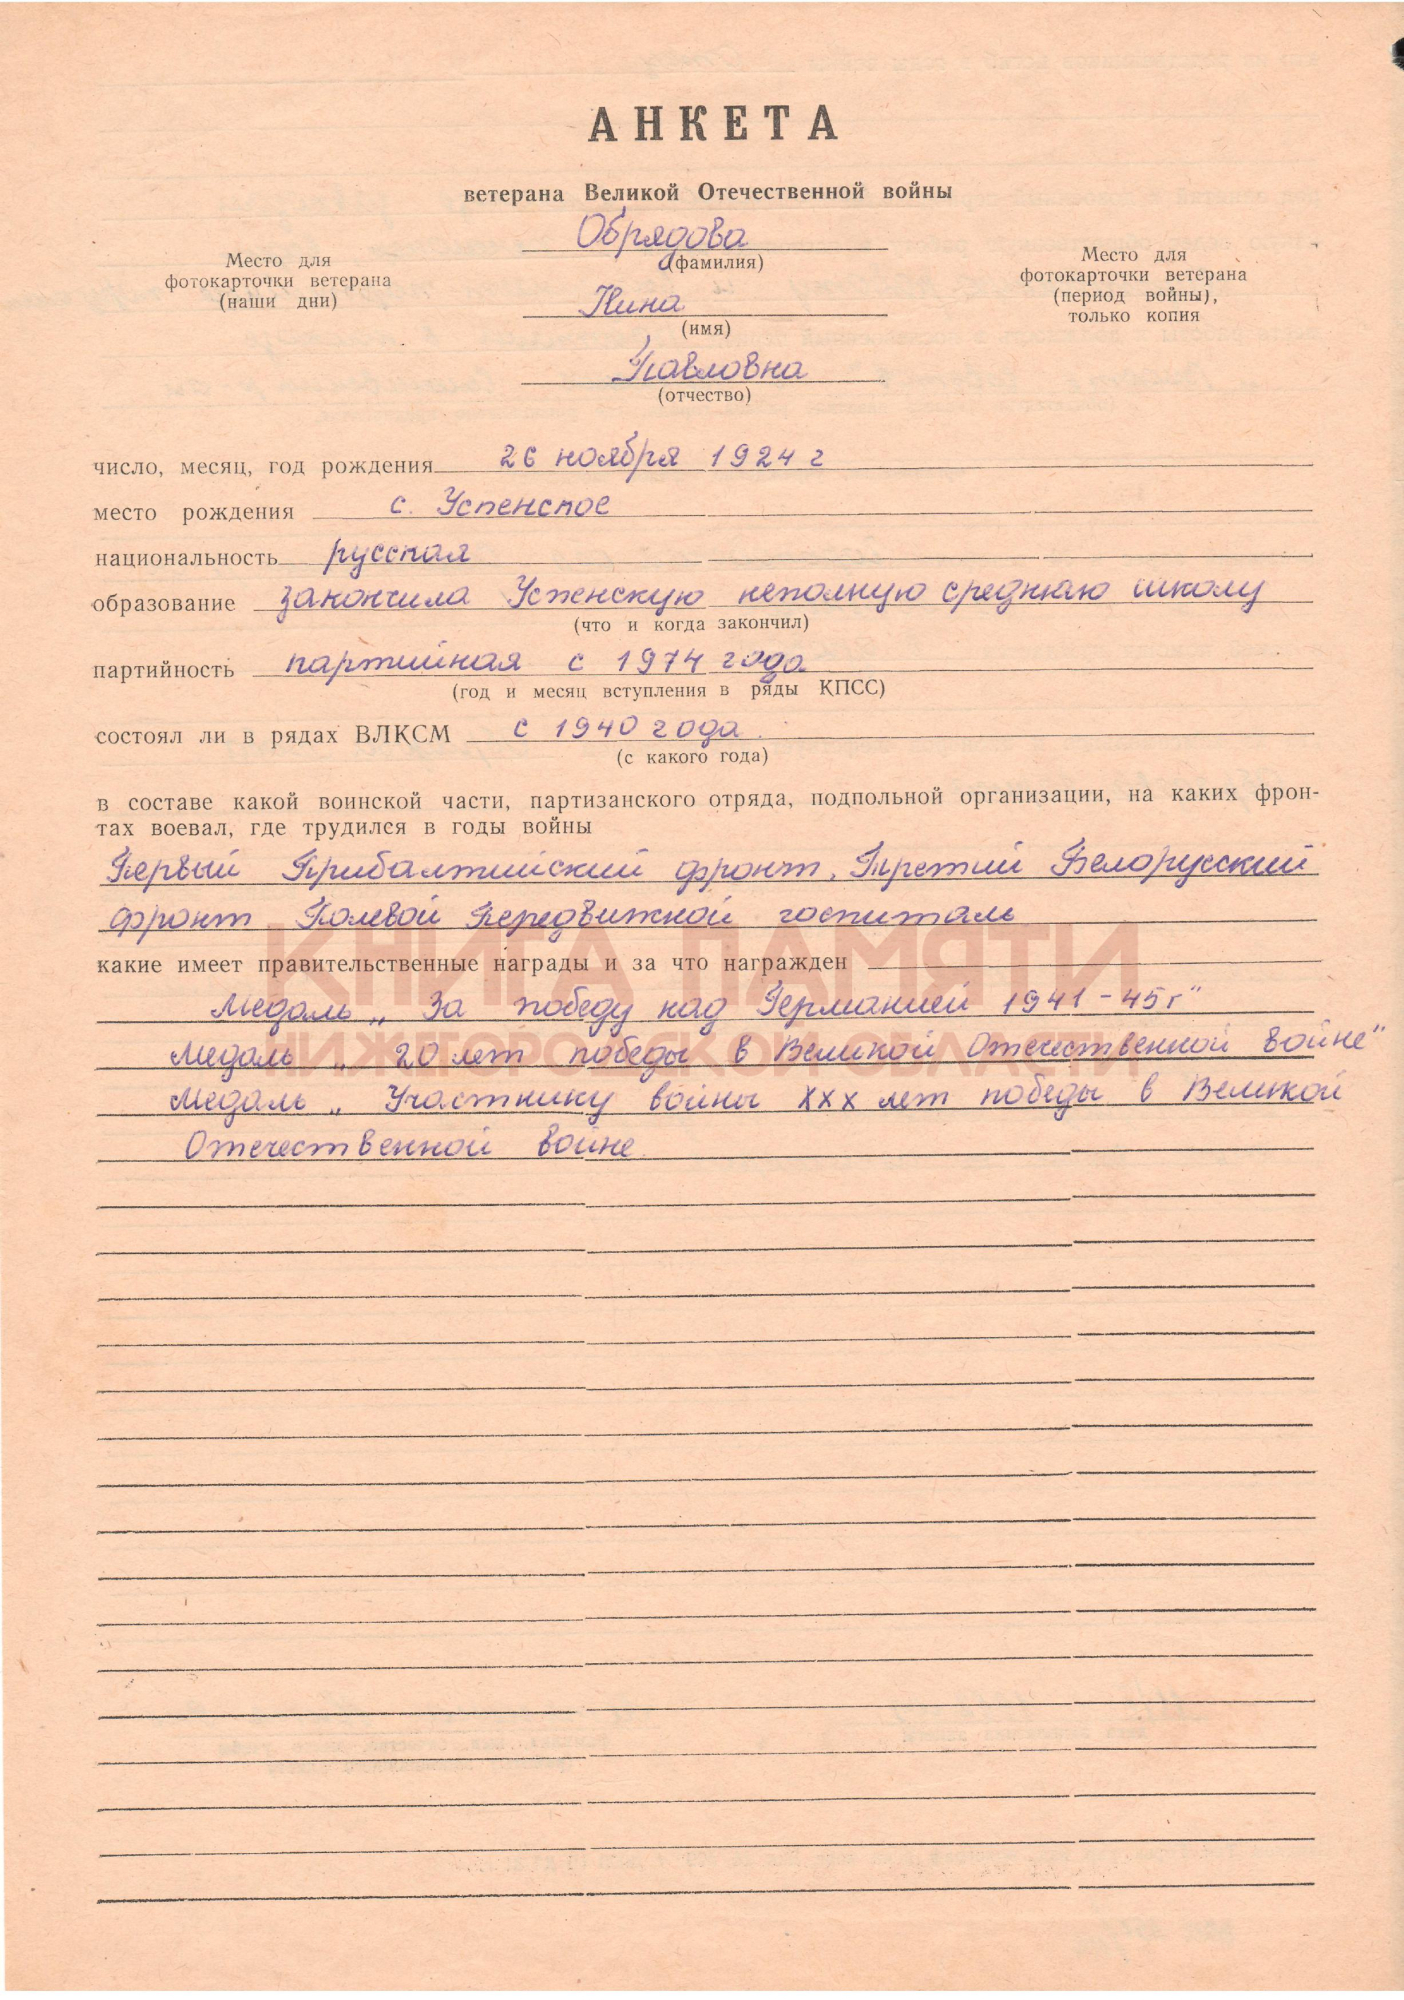 АНКЕТА
ветерана Великой Отечественной войны
Обрядова
(фамилия)
Место для
фотокарточки ветерана
(наши дни)
Место для
фотокарточки ветерана
(период войны),
только копия
Нина
(имя)
Павловна
(отчество)
число, месяц, год рождения 26 ноября 1924 г
место рождения с. Успенское
национальность русская
образование закончила Успенскую неполную среднюю школу
(что и когда закончил)
партийность партийная с 1974 года
(год и месяц вступления в ряды КПСС)
состоял ли в рядах ВЛКСМ с 1940 года.
(с какого года)
в составе какой воинской части, партизанского отряда, подпольной организации, на каких фрон-
тах воевал, где трудился в годы войны
Первый Прибалтийский фронт, Третий Белорусский
фронт Полевой Передвижной госпиталь
КНИГА ПАМЯТИ
какие имеет правительственные награды и за что награжден
Медаль „За победу над Германией 1941-45г"
НИЖЕГОРОДСКОЙ ОБЛАСТИ
Медаль „20 лет победы в Великой Отечественной войне"
Медаль „Участнику войны ХХХ лет победы в Великой
Отечественной войне